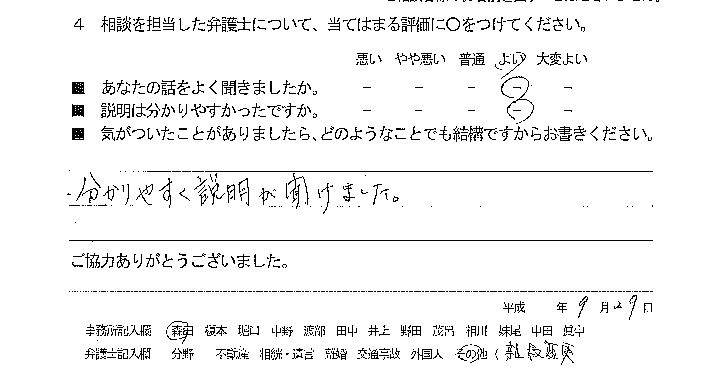 4 相談を担当した弁護士について、当てはまる評価に○をつけてください。
悪い やや悪い 普通 よい 大変よい
あなたの話をよく聞きましたか。 － － － － －
説明は分かりやすかったですか。 － － － － －
気がついたことがありましたら、どのようなことでも結構ですからお書きください。
分かりやすく説明が聞けました。
ご協力ありがとうございました。
平成 年 9 月 29 日
事務所記入欄 森田 榎本 堀口 中野 渡部 田中 井上 野田 茂呂 相川 妹尾 中田
弁護士記入欄 分野 不動産 相続・遺言 離婚 交通事故 外国人 その他 (